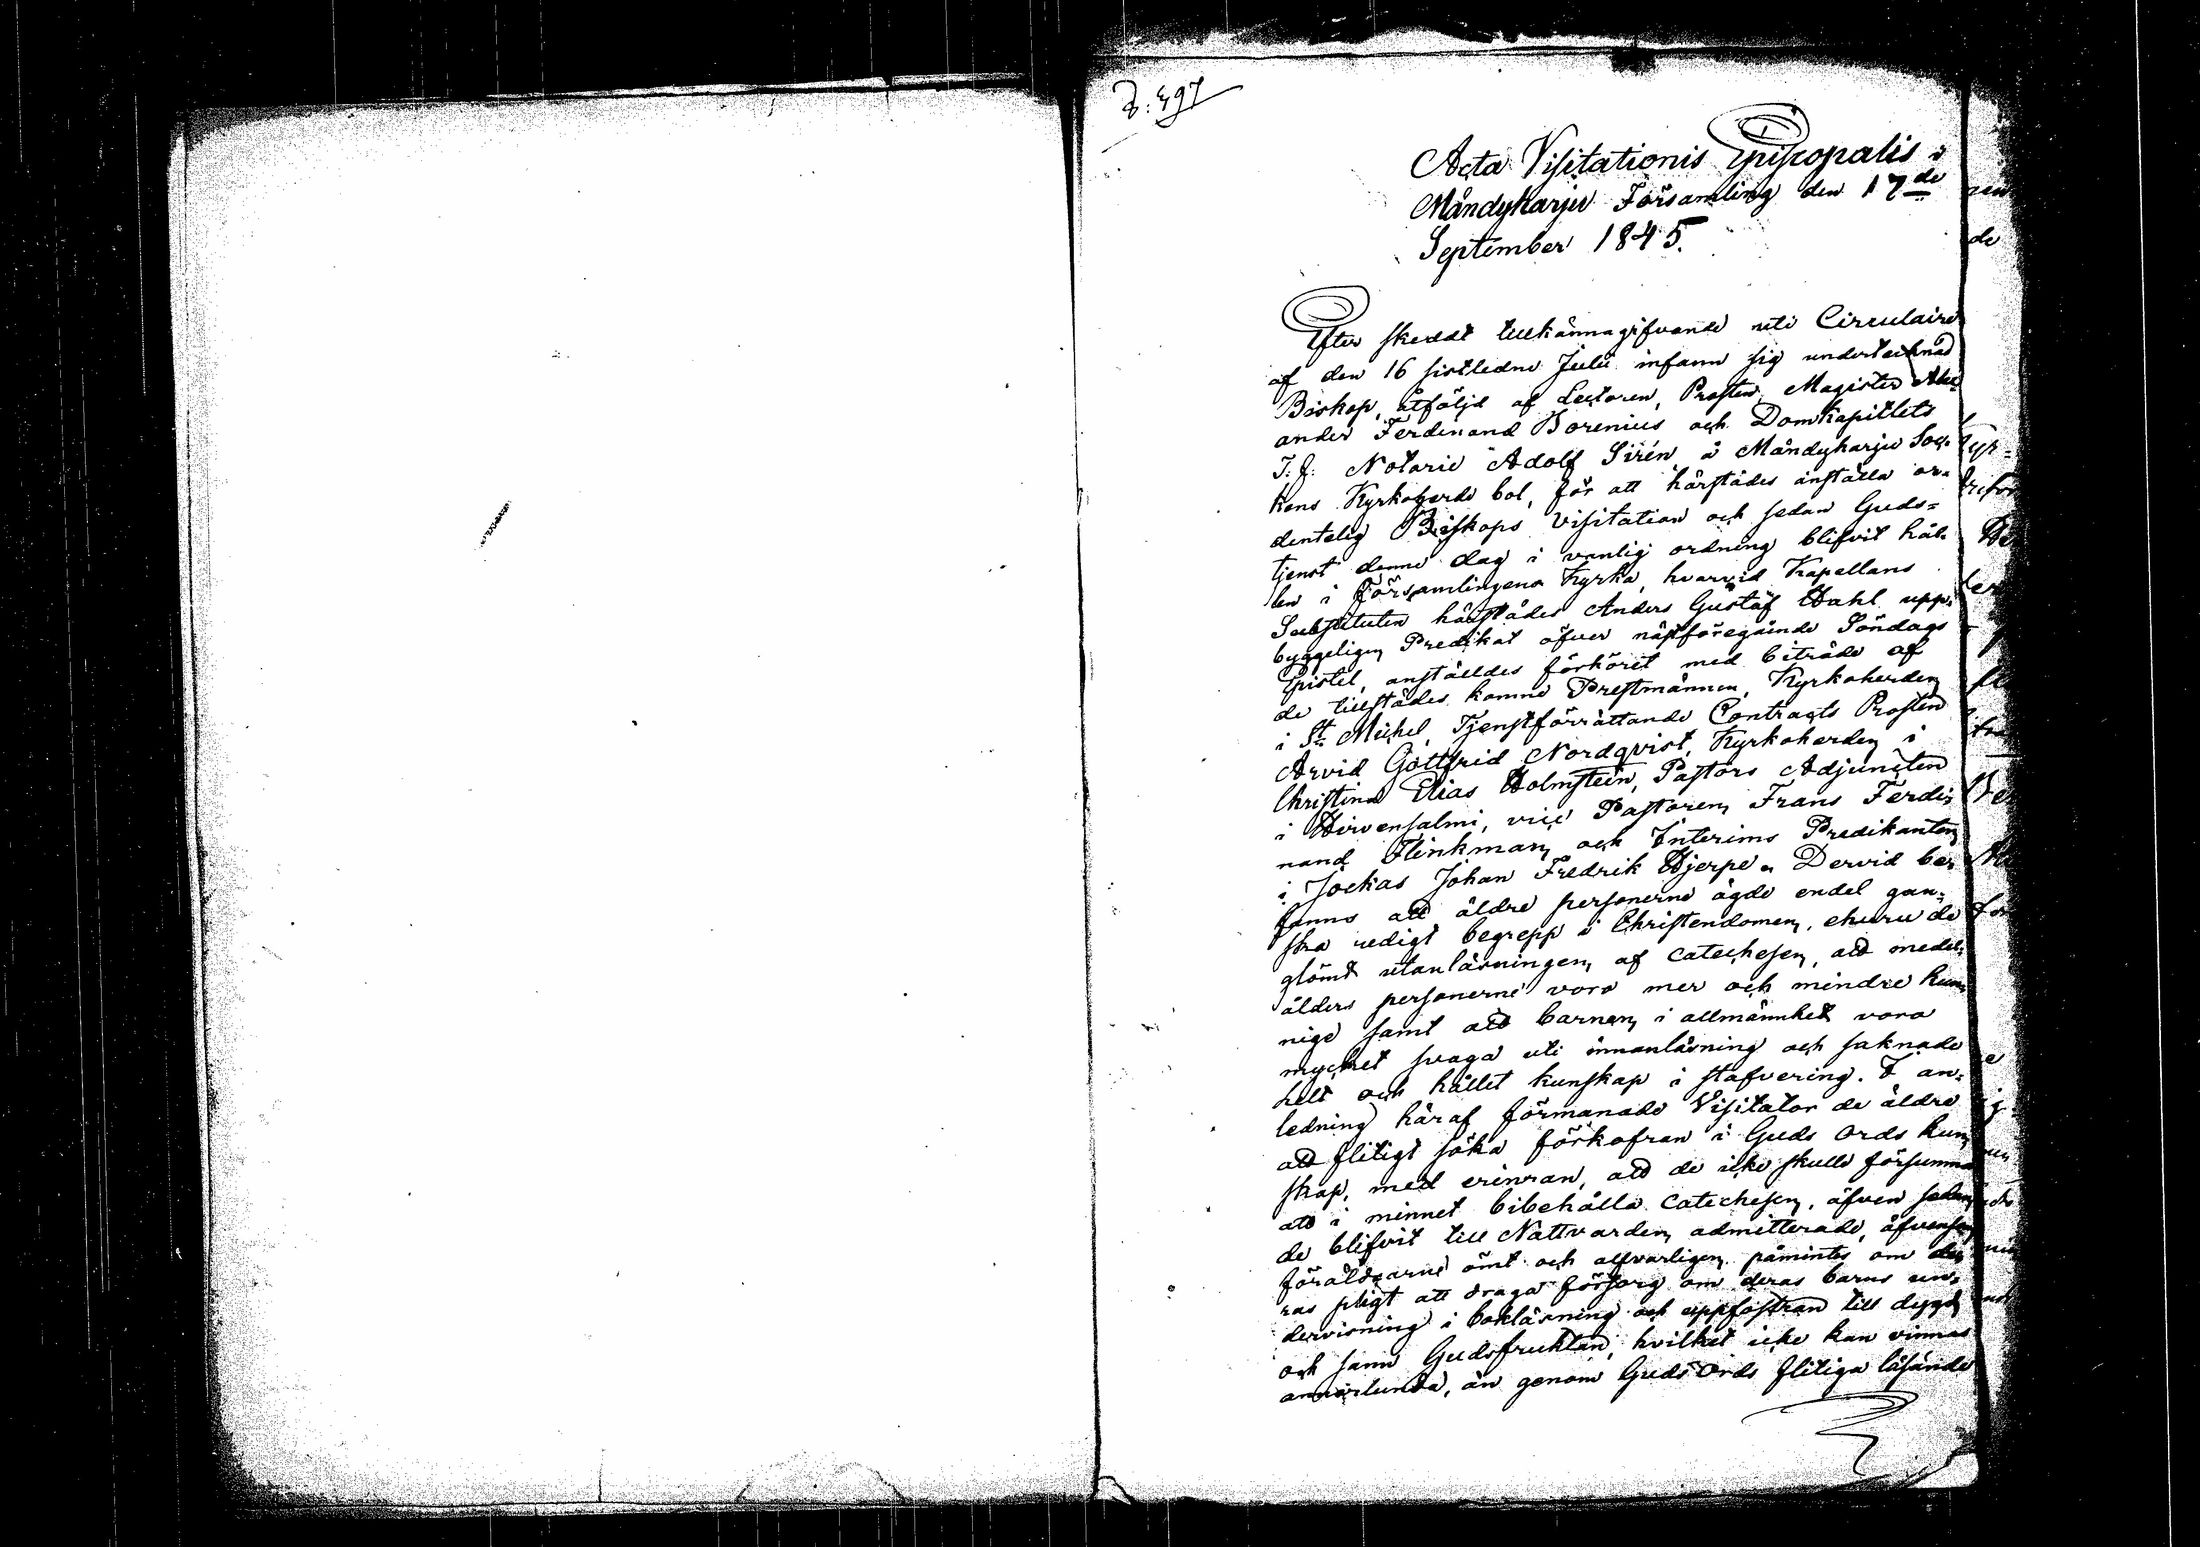 Acta Visitationis Episcopalis i
Mändyharju Församling den 17de
September 1845.
Efter skedt tillkännagifvande uti Circulaire
af den 16 sistledne Julii infann sig undertecknad
Biskop, åtföljd af Lectoren, Prosten, Magister Alex-
ander Ferdinand Borenius och Domkapitlets
T. f. Notarie Adolf Sirén å Mändyharju Soc-
kens Kyrkoherde bol, för att härstädes anställa or-
dentelig Biskops Visitation och sedan Guds-
tjenst denne dag i vanlig ordning blifvit hål-
len i Församlingens Kyrka, hvarvid Kapellans
Substituten härstädes Anders Gustaf Dahl upp-
byggeligen Predikat öfver nästföregående Söndags
Epistel, anställdes förhöret med biträde af
de tillstädes komne Prestmännen, Kyrkoherden
i St Michel, Tjenstförrättande Contracts Prosten
Arvid Gottfrid Nordqvist, Kyrkoherden i
Christina Elias Holmstein, Pastors Adjuncten
i Hirvensalmi, vice Pastoren Frans Ferdi-
nand Flinkman och Interims Predikanten
i Jockas Johan Fredrik Hjerpe. Dervid be-
fanns att äldre personerne ägde endel gan-
ska redigt begrepp i Christendomen, ehuru de
glömt utanläsningen af catechesen, att medel-
ålders personerne voro mer och mindre kun-
nige samt att barnen i allmännhet voro
mycket svaga uti innanläsning och saknade
helt och hållet kunskap i stafvering. I an-
ledning häraf förmanade Visitator de äldre
att flitigt söka förkofran i Guds Ords kun-
skap, med erinran, att de icke skulle försumma
att i minnet bibehålla catechesen, äfven sedan
de blifvit till Nattvarden admitterade, äfvensom
föräldrarne ömt och alfvarligen påmintes om de-
ras pligt att draga försorg om deras barns un-
dervisning i bokläsning och uppfostran till dygd
och sann Gudsfruktan, hvilket icke kan vinnas
annorlunda, än genom Guds Ords flitiga läsande